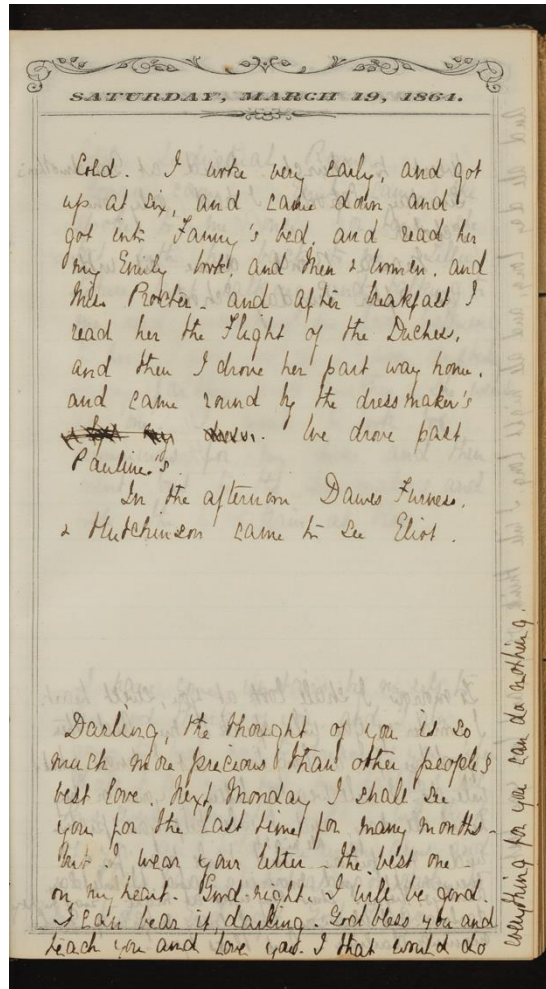 SATURDAY, MARCH 19, 1864.
Cold. I woke very early, and got
up at six, and came down and
got into Fanny's bed, and read her
my Emily book, and Men & Women, and
Miss Procter - and after breakfast I
read her the Flight of the Duchess,
and then I drove her part way home,
and came round by the dressmaker's
We drove past
Pauline's.
In the afternoon Dawes Furness,
& Hutchinson came to see Eliot.
Darling, the thought of you is so
much more precious than other people's
best love. Next Monday I shall see
you for the last time for many months -
But I wear your letter - the best one -
on my heart. Good-night. I will be good.
I can bear it darling. God bless you and
teach you and love you. I that would do
everything for you can do nothing.